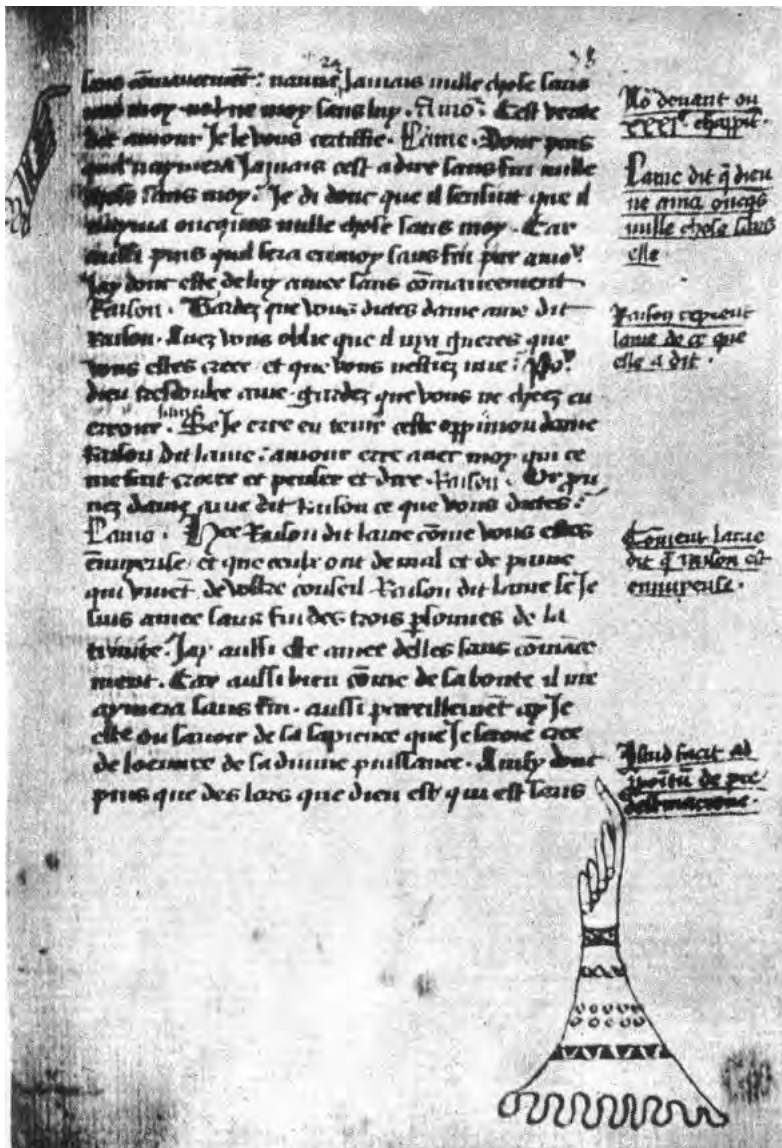 24
38
sans cõmancement : naime Jamais nulle chose sans
moy ne moy sans luy . Amoͬ : C'est verite
dit amour Je le vous certiffie . Lame . Donc puis
quil naymera Jamais cest a dire sans fin nulle
chose sans moy . Je di donc que il sensuit que il
nayma oncques nulle chose sans moy . Car
aussi puis quil sera en moy sans fin par amoͬ
Jay donc este de luy amee sans cõmancement
Raison . Gardez que vous dictes dame ame dit
Raison . Avez vous oblie que il nya gueres que
vous estes cree et que vous nestiez mie : Poͬ
dieu tresdoulce ame gardez que vous ne cheez en
erroure . Se Je erre en tenir ceste oppinion dame
Raison dit lame : amour erre avec moy qui ce
me fait croire et penser et dire . Raison . Or pu
nez dame ame dit Raison ce que vous dictes :
Lame . Hee Raison dit lame cõme vous estes
ennuyeuse et que ceulx ont de mal et de paine
qui vivent de vostre conseil Raison dit lame se Je
suis amee sans fin des trois psonnes de la
trinite . Jay aussi este amee delles sans cõmãce
ment . Car aussi bien cõme de sa bonte il me
aymera sans fin . aussi pareillement ay Je
este ou savoir de sa sapience que Je seroie cree
de loeuvre de sa divine puissance . Ainsy donc
puis que des lors que dieu est qui est sans
Nõ devant ou
xxxiͤ chappit .
Lame dit q̃ dieu
ne ama oncqs
nulle chose sans
elle .
Raison reprent
lame de ce que
elle a dit .
Coment lame
dit q̃ raison est
ennuyeuse .
Istud facit ad
de pre
destinacione .